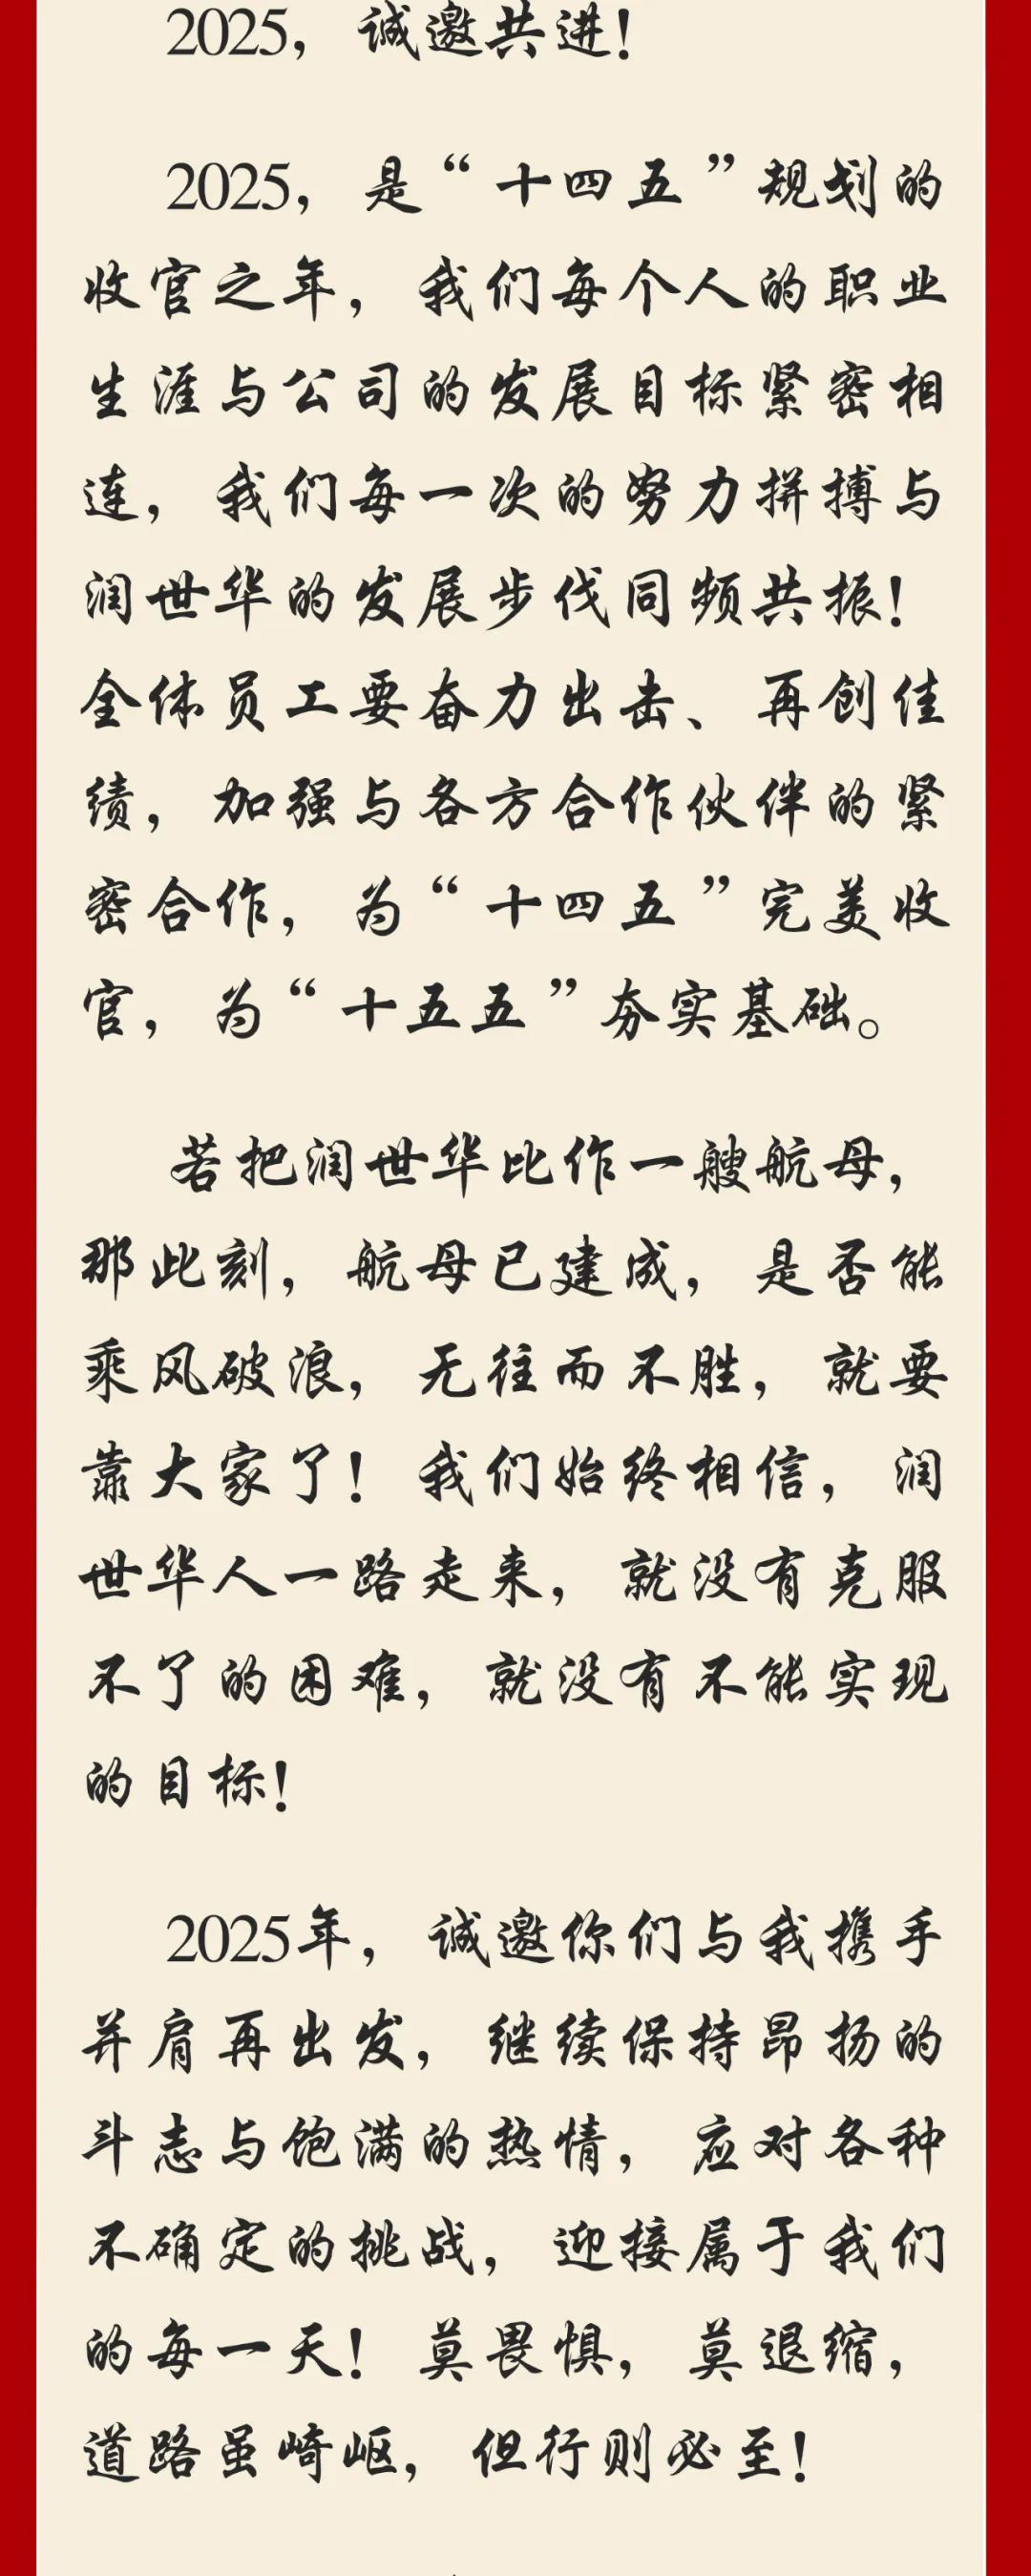 2025，诚邀共进！
2025，是“十四五”规划的
收官之年，我们每个人的职业
生涯与公司的发展目标紧密相
连，我们每一次的努力拼搏与
润世华的发展步伐同频共振！
全体员工要奋力出击、再创佳
绩，加强与各方合作伙伴的紧
密合作，为“十四五”完美收
官，为“十五五”夯实基础。
若把润世华比作一艘航母，
那此刻，航母已建成，是否能
乘风破浪，无往而不胜，就要
靠大家了！我们始终相信，润
世华人一路走来，就没有克服
不了的困难，就没有不能实现
的目标！
2025年，诚邀你们与我携手
并肩再出发，继续保持昂扬的
斗志与饱满的热情，应对各种
不确定的挑战，迎接属于我们
的每一天！莫畏惧，莫退缩，
道路虽崎岖，但行则必至！